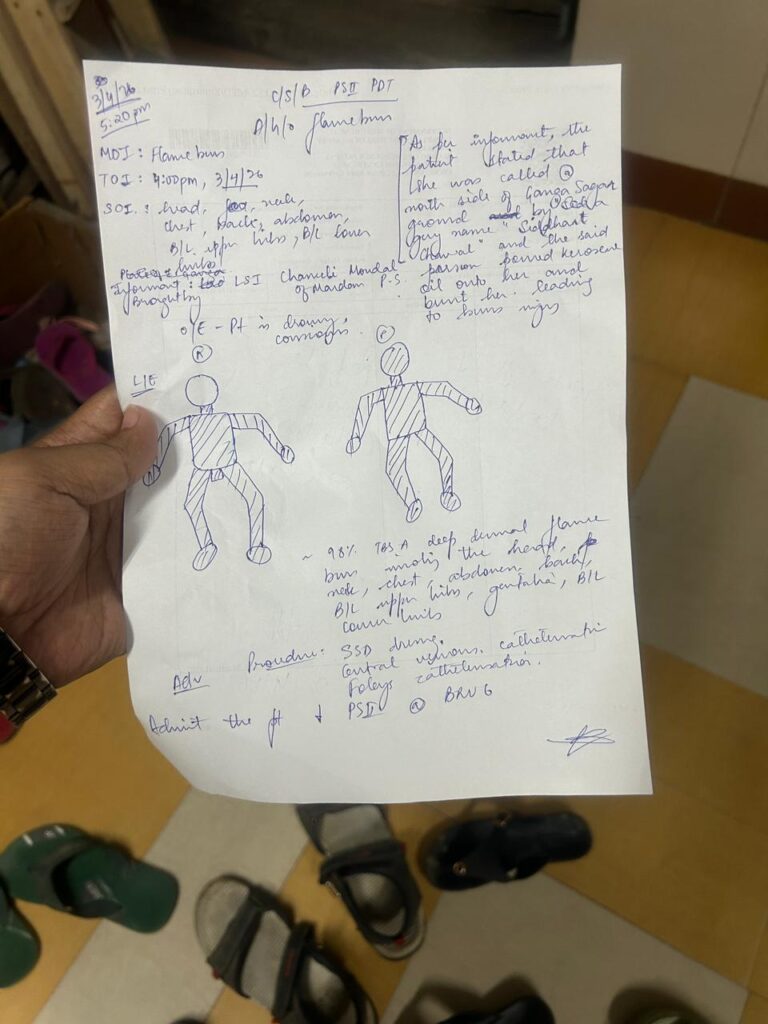 3/4/26
5:20pm
C/S/B PSII PDT
A/H/O flame burn
MOI : Flame burn
TOI : 4:00pm, 3/4/26
SOI : head, neck,
chest, back, abdomen,
B/L upper limbs, B/L lower
limbs
Informant : LSI Mondal
Brought by of Mardom P.S.
As per informant, the
patient stated that
she was called @
north side of Ganga Sagar
ground by a
guy name "Siddhart
" and the said
person poured kerosene
oil onto her and
burnt her leading
to burn
O/E - Pt is drowsy,
conscious.
L/E
~ 98% TBSA deep dermal flame
burn the head,
neck, chest, abdomen, back,
B/L upper limbs, genitalia, B/L
lower limbs
Procedure: SSD dressing.
Central venous catheterisation
Foleys catheterisation.
Adv
Admit the pt ↓ PSII @ BRU 6